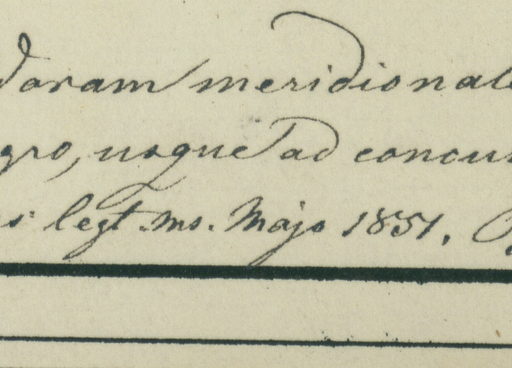 doram meridionale
gro, usque ad concur
s legt. ms. Majo 1851.